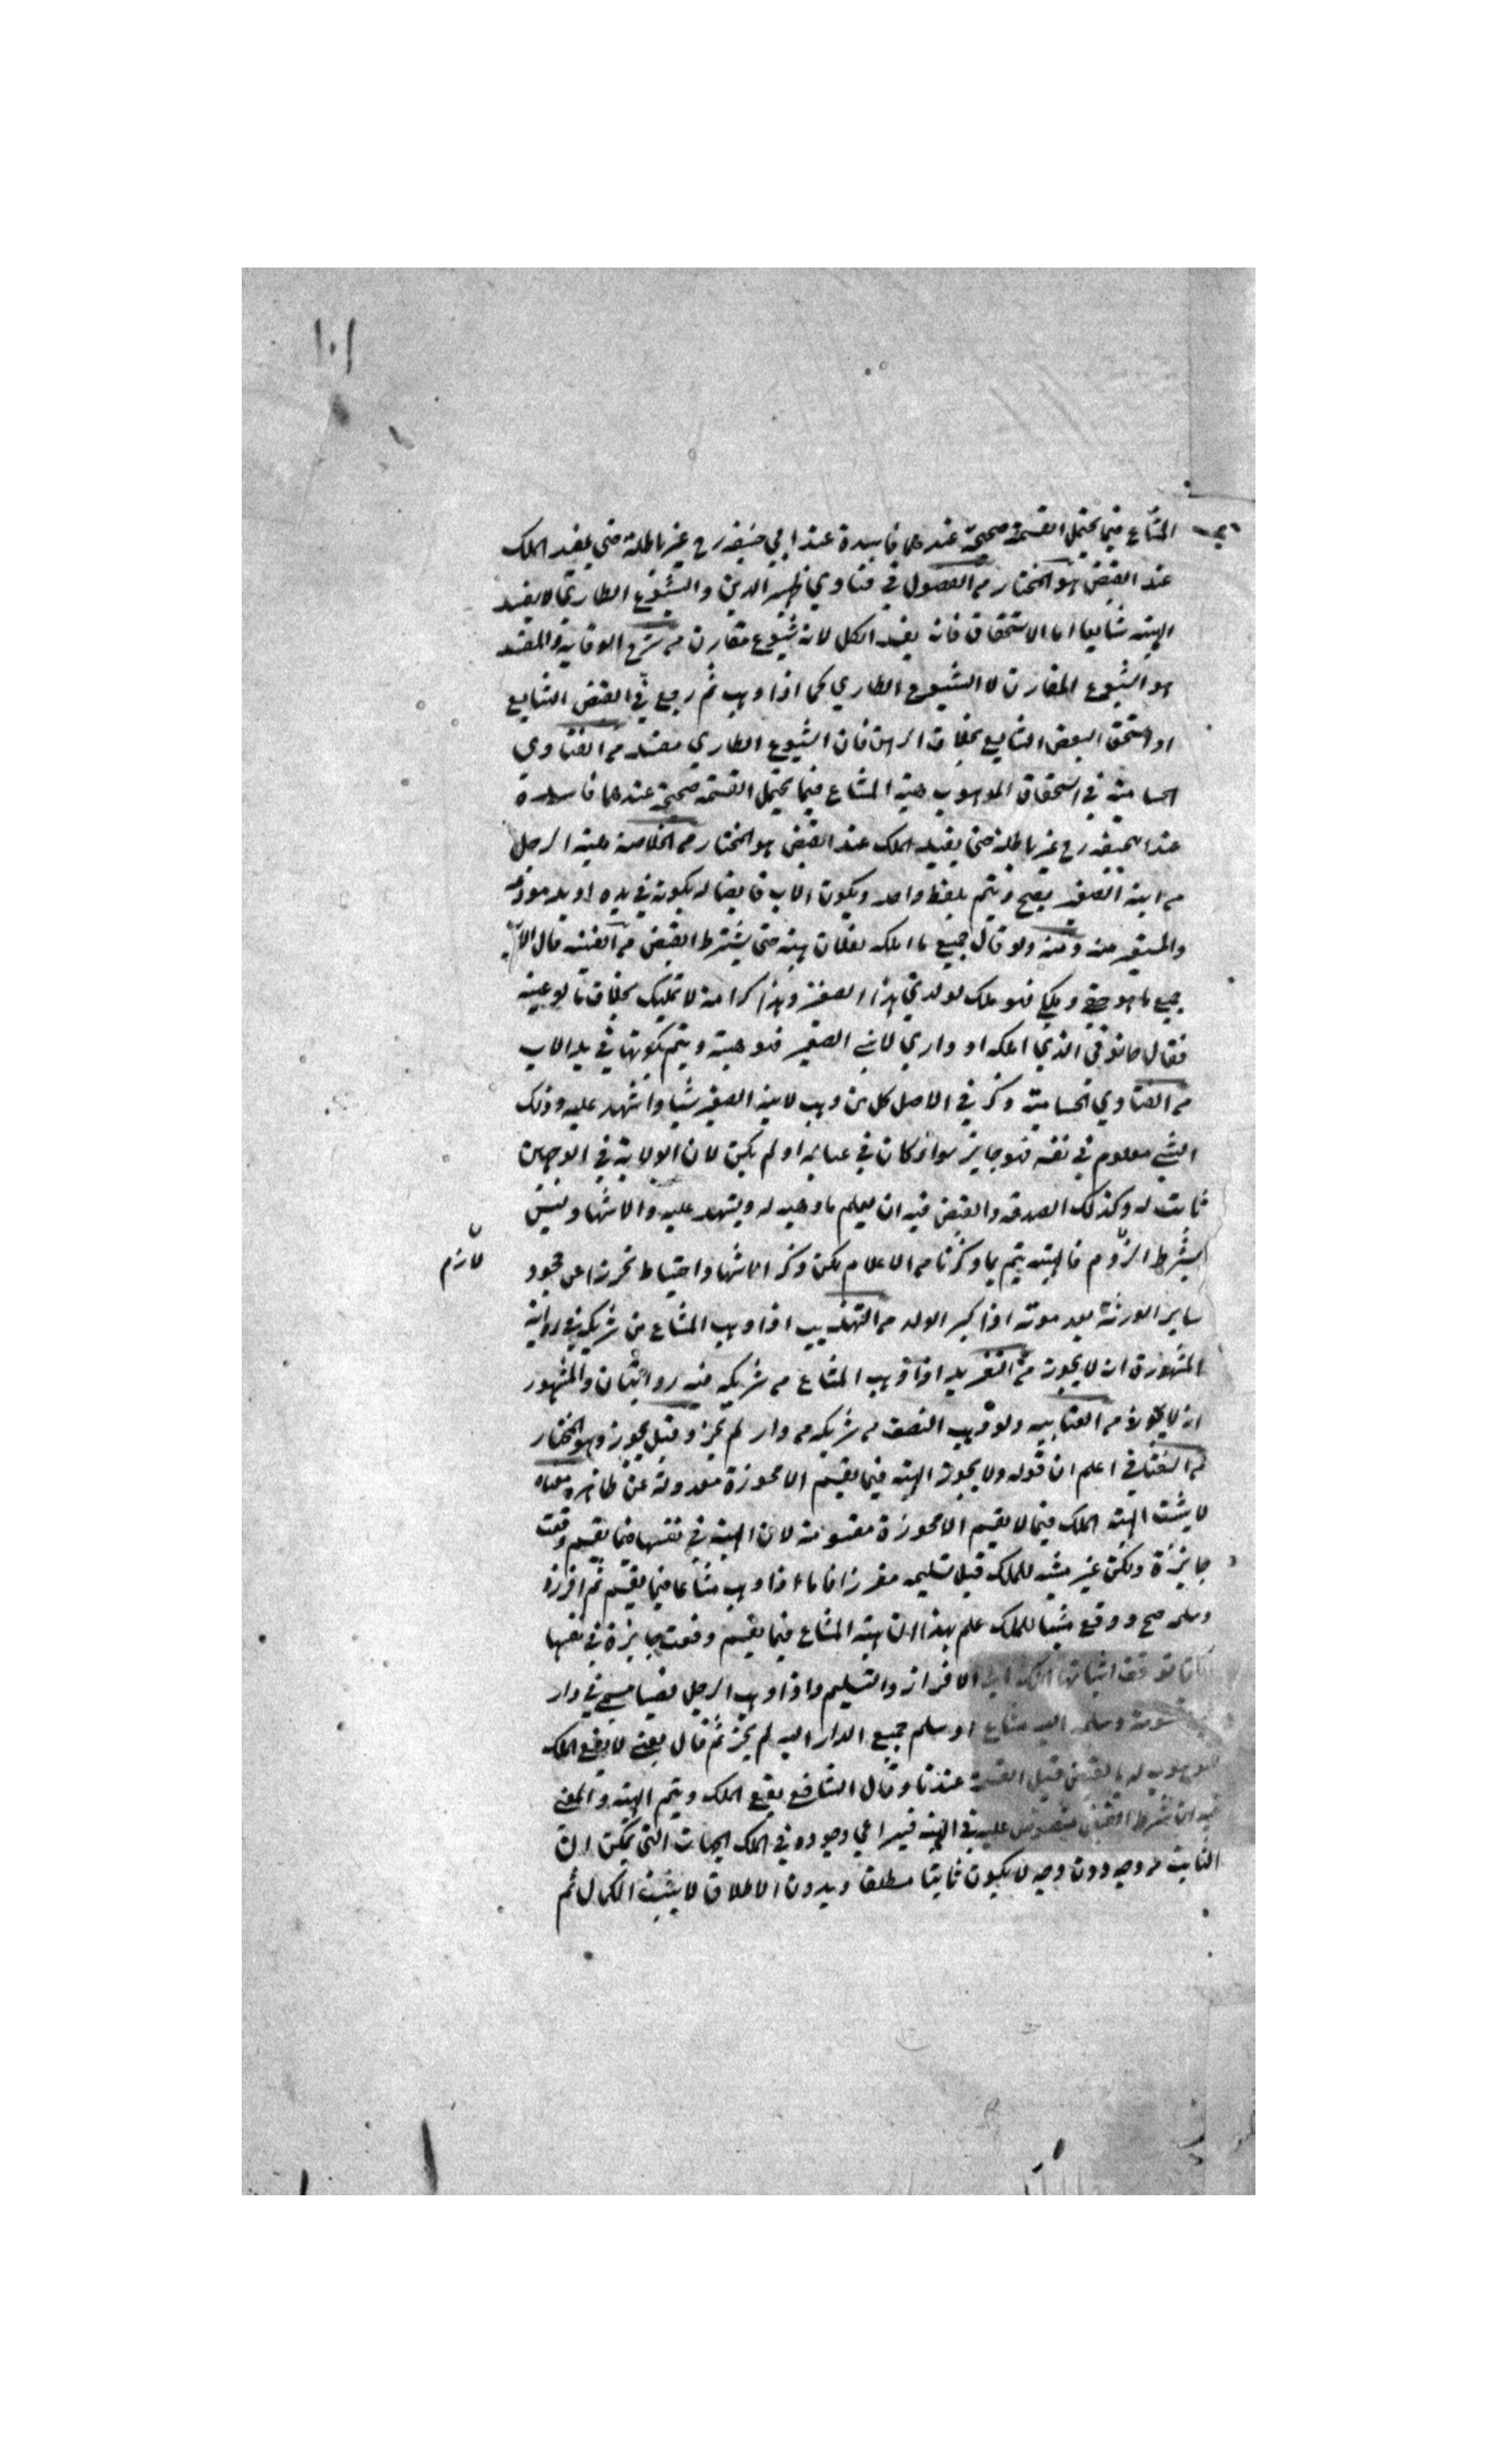 ١٠١
المشاع فيما يحتمل القسمة صحيحة عندهما فاسدة عند ابي حنيفه رح غير باطلة حتى يفيد الملك
عند القبض هو المختار من الفصول في فتاوي ظهير الدين والشيوع الطاري لا يفسد
الهبه شايعا اما الاستحقاق فانه يفسد الكل لانه شيوع مقارن من شرح الوقايه والمفسد
هو الشيوع المقارن لا الشيوع الطاري كما اذا وهب ثم رجع في البعض الشايع
او استحق البعض الشايع بخلاف الرهن فان الشيوع الطاري مفسد من الفتاوي
الحسامية في استحقاق الموهوب هبة المشاع فيما يحتمل القسمة صحيحة عندهما فاسدة
عند ابحنيفه رح غير باطلة حتى يفيد الملك عند القبض هو المختار من الخلاصة هبة الرجل
من ابنه الصغير يصح ويتم بلفظ واحد ويكون الاب قابضا له بكونه في يده او يد مودعه
والمستعير منه ولو قال جميع ما املكه لفلان هبة حتى يشترط القبض من القنيه قال الاب
جميع ما هو حقي وملكي فهو ملك لولدي هذا الصغير وهذا كرامة لا تمليك بخلاف ما لو عينه
فقال حانوتي الذي املكه او داري لابني الصغير فهو هبة ويتم بكونها في يد الاب
من الفتاوي الحسامية وذكر في الاصل كل من وهب لابنه الصغير شيا واشهد عليه وذلك
الشي معلوم في نفسه فهو جايز سواء كان في عياله او لم يكن لان الولاية في الوجهين
ثابت له وكذلك الصدقه والقبض فيه ان يعلم ما وهبه له ويشهد عليه والاشهاد ليس
بشرط الزوم فالهبه يتم بما ذكرنا من الاعلام لكن ذكر الاشهاد احتياط تحرزا عن جحود
لازم
ساير الورثة بعد موته اذا كبر الولد من التهذيب اذا وهب المشاع من شريكه في رواية
المشهورة انه لا يجوز من التفريد اذا وهب المشاع من شريكه فيه روايتان والمشهور
انه لا يجوز من العتابيه ولو وهب النصف من شريكه من دار لم يجز وقيل يجوز وهو المختار
من اعلم ان قوله ولا يجوز الهبة فيما يقسم الا محوزة معدولة عن ظاهره معناه
لا يثبت الهبة الملك فيما لا يقسم الا محوزة مقسومة لان الهبة في نفسها فيما يقسم وقعت
جايزة ولكن غير مثبت للملك قبل تسليمه مفرزا فاما اذا وهب مشاعا فيما يقسم ثم افرزه
وسلمه صح ووقع مثبتا للملك علم بهذا ان هبة المشاع فيما يقسم وقعت جايزة في نفسها
توقف اثباتها الملك الى الافراز والتسليم واذا وهب الرجل نصيبا مسمى في دار
وسلمه اليه مشاع او سلم جميع الدار اليه لم يجز ثم قال يعني لا يقع الملك
للموهوب له بالقبض قبل القسمة عندنا وقال الشافعي يقع الملك ويتم الهبة والمعنى
فيه ان شرط القبض منصوص عليه في الهبة فيراعي وجوده في الملك الجهات التي يمكن ان
الثابت من وجه دون وجه لا يكون ثابتا مطلقا وبدون الاطلاق لا يثبت الكمال ثم